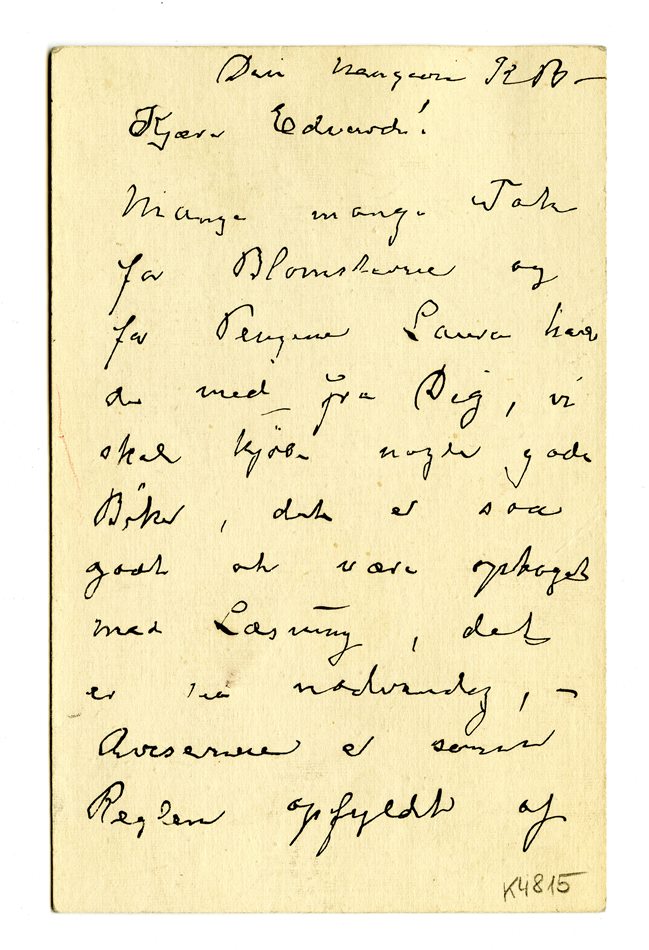 Din hengivne K B –
Kjære Edvard!
Mange mange Tak
for Blomsterne og
for Pengene Laura havde
med fra Dig, vi
skal kjøbe nogle gode
Bøker, det er saa
godt at være optaget
med Læsning, det
er nødvendig, –
Aviserne er som
Reglen opfyldt af
K4815